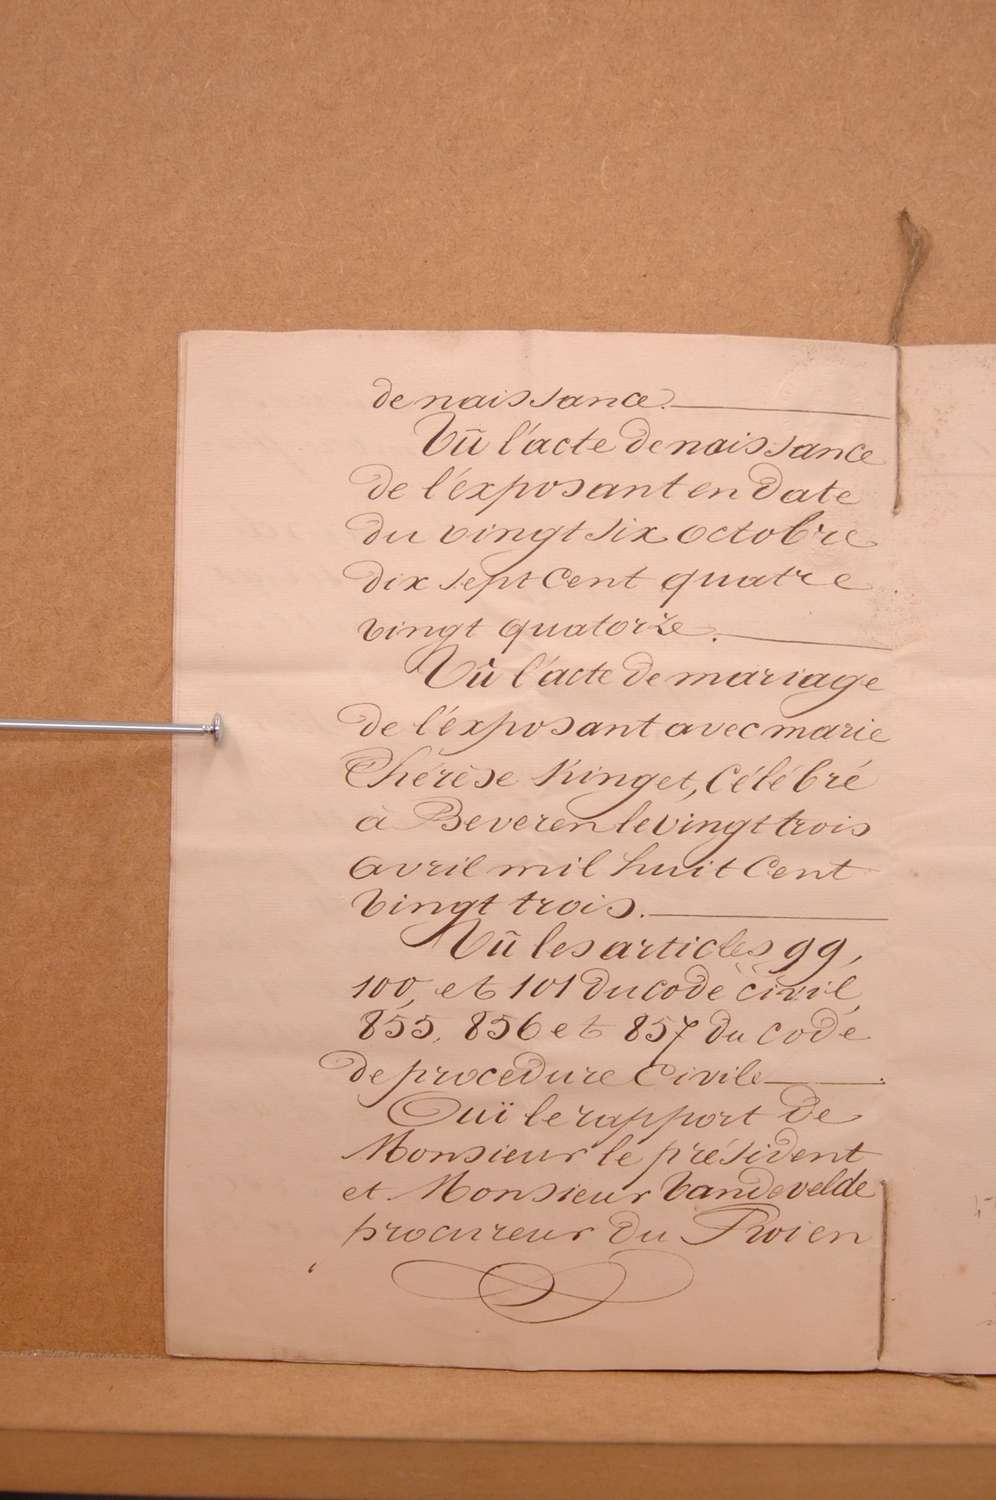 de naissance.
Vû l'acte de naissance
de l'éxposant en date
du vingt six octobre
dix sept cent quatre
vingt quatorze.
Vû l'acte de mariage
de l'éxposant avec marie
Thérèse Kinget, célébré
à Beveren le vingt trois
avril mil huit cent
vingt trois.
Vû les articles 99,
100, et 101 du code civil,
855, 856 et 857 du code
de procedure Civile
Ouï le rapport de
Monsieur le président
et Monsieur Vandevelde
procureur du Roi en